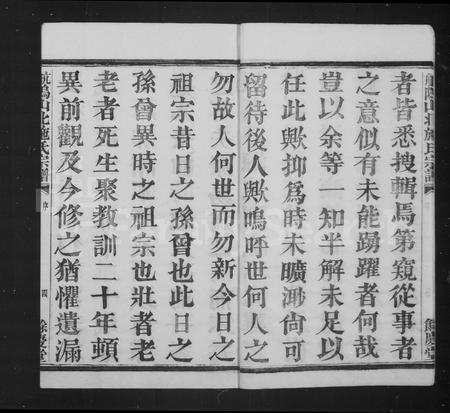 航塢山北施氏宗譜
餘慶堂
者皆悉搜輯焉第窺從事者
之意似有未能踴躍者何哉
豈以余等一知半解未足以
任此歟抑爲時未曠渺尙可
留待後人歟嗚呼世何人之
勿故人何世而勿新今日之
祖宗昔日之孫曾也此日之
孫曾異時之祖宗也壯者老
老者死生聚教訓二十年頓
異前觀及今修之猶懼遺漏
航塢山北施氏宗譜
序
四
餘慶堂